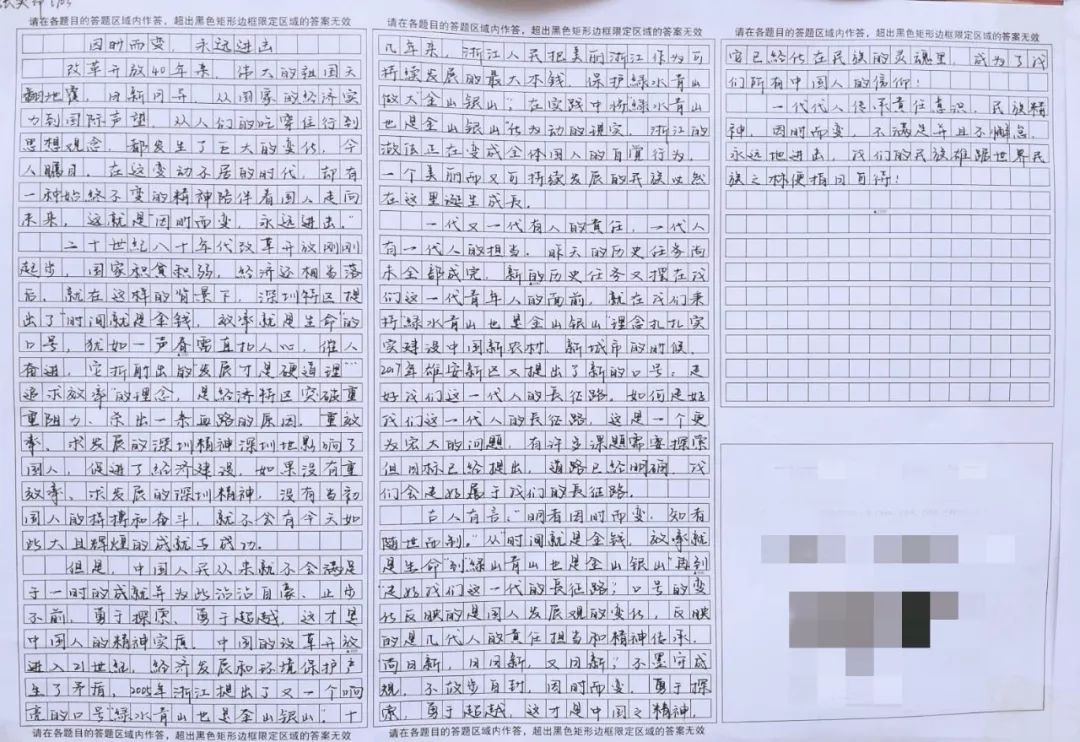 请在各题目的答题区域内作答，超出黑色矩形边框限定区域的答案无效
因时而变，永远进击
改革开放40年来，伟大的祖国天
翻地覆，日新月异，从国家的经济实
力到国际声望，从人们的吃穿住行到
思想观念，都发生了巨大的变化，令
人瞩目。在这变动不居的时代，却有
一种始终不变的精神陪伴着国人走向
未来，这就是“因时而变，永远进击。”
二十世纪八十年代改革开放刚刚
起步，国家积贫积弱，经济还相当落
后，就在这样的背景下，深圳特区提
出了“时间就是金钱，效率就是生命”的
口号，犹如一声春雷直扣人心，催人
奋进，它折射出的“发展才是硬道理”“
追求效率”的理念，是经济特区突破重
重阻力、杀出一条血路的原因。重效
率、求发展的深圳精神深圳地影响了
国人，促进了经济建设，如果没有重
效率、求发展的深圳精神，没有当初
国人的拼搏和奋斗，就不会有今天如
此大且辉煌的成就与成功。
但是，中国人民从来就不会满足
于一时的成就并为此沾沾自喜、止步
不前，勇于探索、勇于超越，这才是
中国人的精神实质。中国的改革开放
进入21世纪，经济发展和环境保护产
生了矛盾，2005年浙江提出了又一个响
亮的口号“绿水青山也是金山银山”。十
请在各题目的答题区域内作答，超出黑色矩形边框限定区域的答案无效
请在各题目的答题区域内作答，超出黑色矩形边框限定区域的答案无效
几年来，浙江人民把美丽浙江作为可
持续发展的最大本钱，保护绿水青山
做大“金山银山”，在实践中将绿水青山
也是金山银山”化为动的现实，浙江的
做法正在变成全体国人的自觉行为，
一个美丽而又可持续发展的民族必然
在这里诞生成长。
一代又一代有人的责任，一代人
有一代人的担当。昨天的历史任务尚
未全部成完，新的历史任务又摆在我
们这一代青年人的面前，就在我们秉
持“绿水青山也是金山银山”理念扎扎实
实建设中国新农村、新城市的时候，
2017年雄安新区又提出了新的口号：走
好我们这一代人的长征路。如何走好
我们这一代人的长征路，这是一个更
为宏大的问题，有许多课题需要探索
但目标已经提出，道路已经明确，我
们会走好属于我们的长征路。
古人有言：“明者因时而变，知者
随世而制。”从时间就是金钱，效率就
是生命”到“绿山青山也是金山银山”再到
“走好我们这一代的长征路；口号的变
化反映的是国人发展观的变化，反映
的是几代人的责任担当和精神传承，
苟日新，日日新，又日新；不墨守成
规，不故步自封，因时而变，勇于探
索，勇于超越，这才是中国之精神，
请在各题目的答题区域内作答，超出黑色矩形边框限定区域的答案无效
请在各题目的答题区域内作答，超出黑色矩形边框限定区域的答案无效
它已经化在民族的灵魂里，成为了我
们所有中国人的信仰！
一代代人传承责任意识，民族精
神，因时而变，不满足并且不懈怠，
永远地进击，我们的民族雄踞世界民
族之林便指日可待！